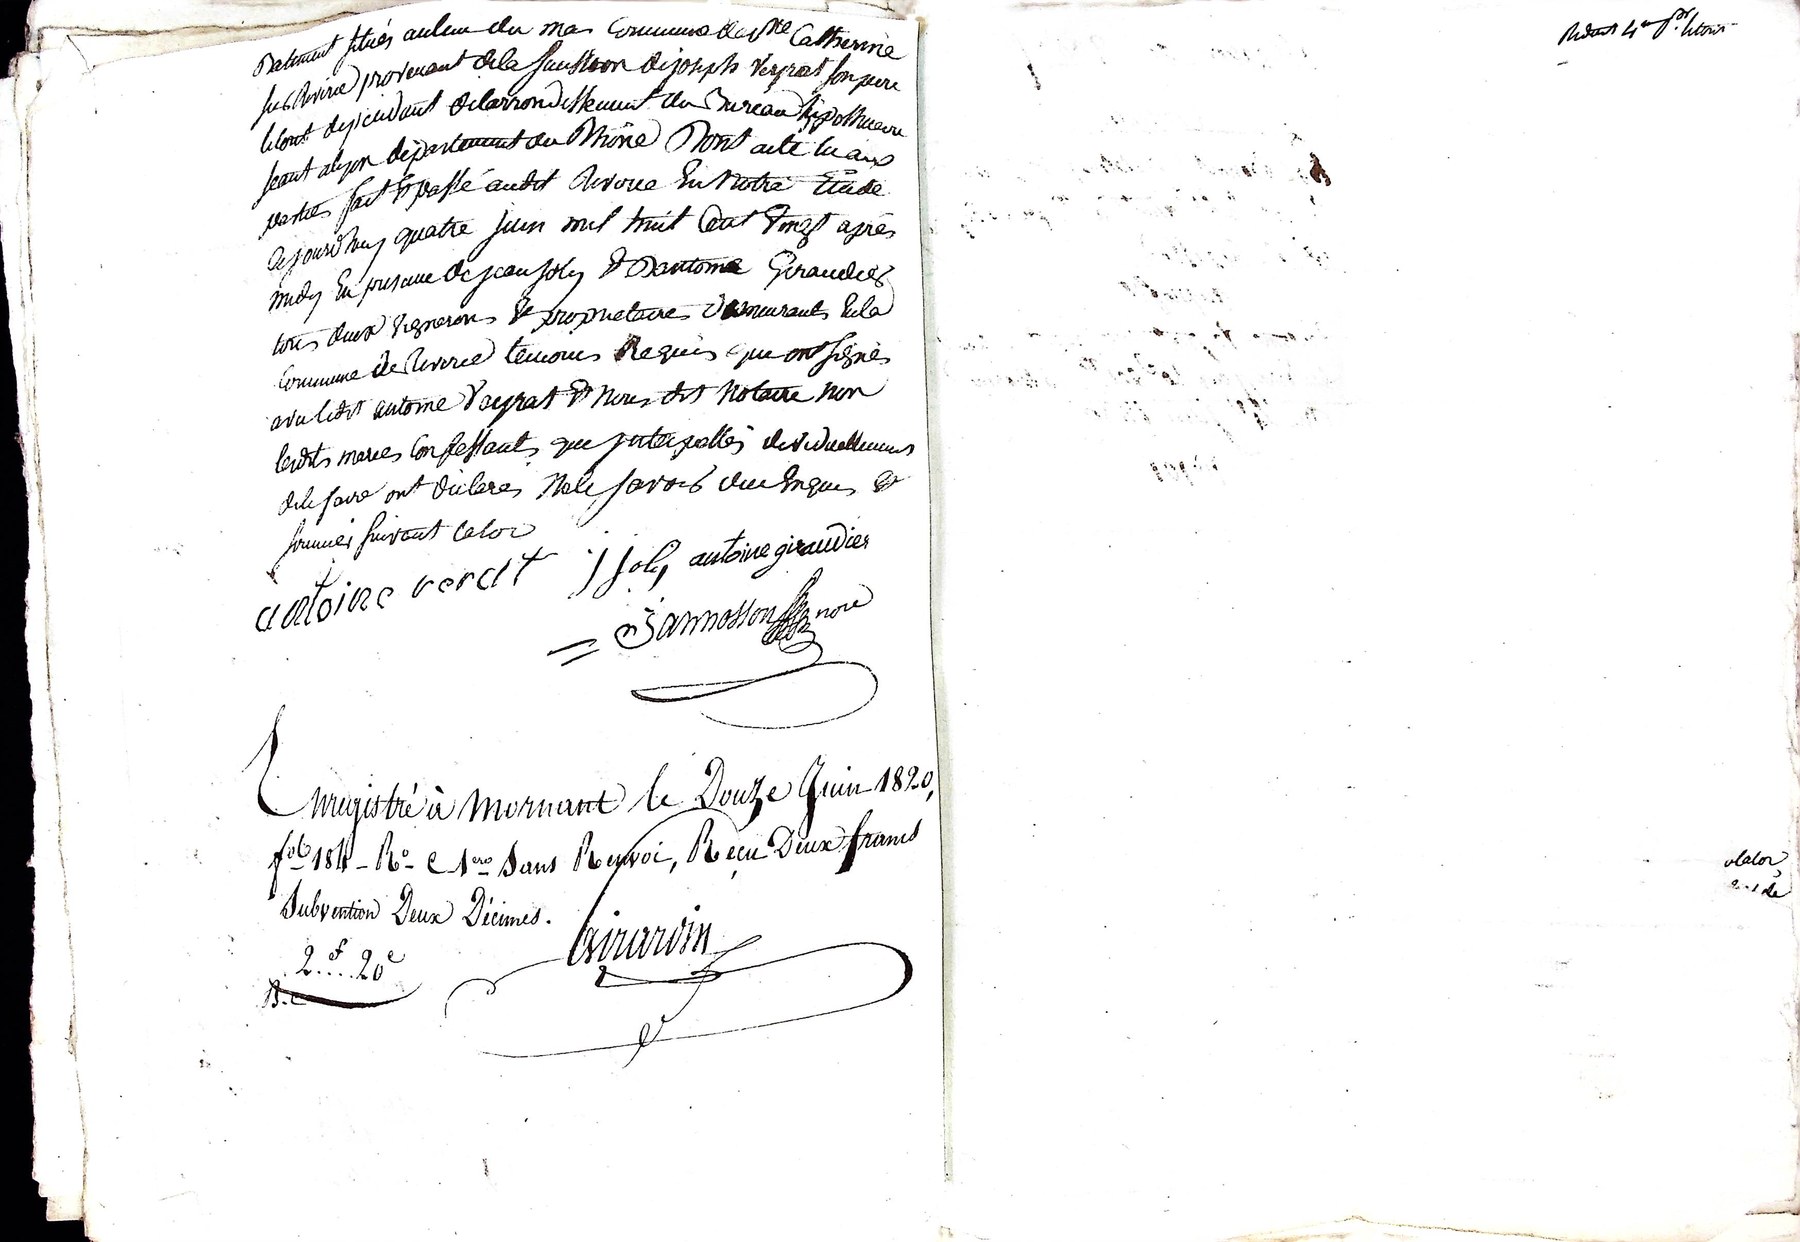 Batiment situés au lieu du mas Commune de Ste Catherine
sur Riverie provenant de la succession de joseph Veyrat son pere
le tout dependant de larrondissement du Bureau hipothecaire
seant a lyon département du Rhône Dont acte lu aux
parties fait & passé audit Riverie En Notre Etude
Cejourdhuy quatre juin mil huit Cent Vingt après
midy En presence de jean joly & Dantoine Giraudier
tous deux Vignerons & proprietaires demeurants En la
Commune de Riverie temoins Requis qui ont signés
avec ledit antoine Veyrat & Nous dit Notaire Non
lesdits maries Confessants que interpellés individuellement
de le faire ont declarés Ne le savoir duement Enquis &
sommés suivant la loi
antoine verat j joly antoine giraudier
Jannosson nore
Enregistré à Mornant le Douze Juin 1820,
fol 184 Ro C 1ere Sans Renvoi, Reçu Deux francs
Subvention Deux Décimes.
2f....20c
Girardin